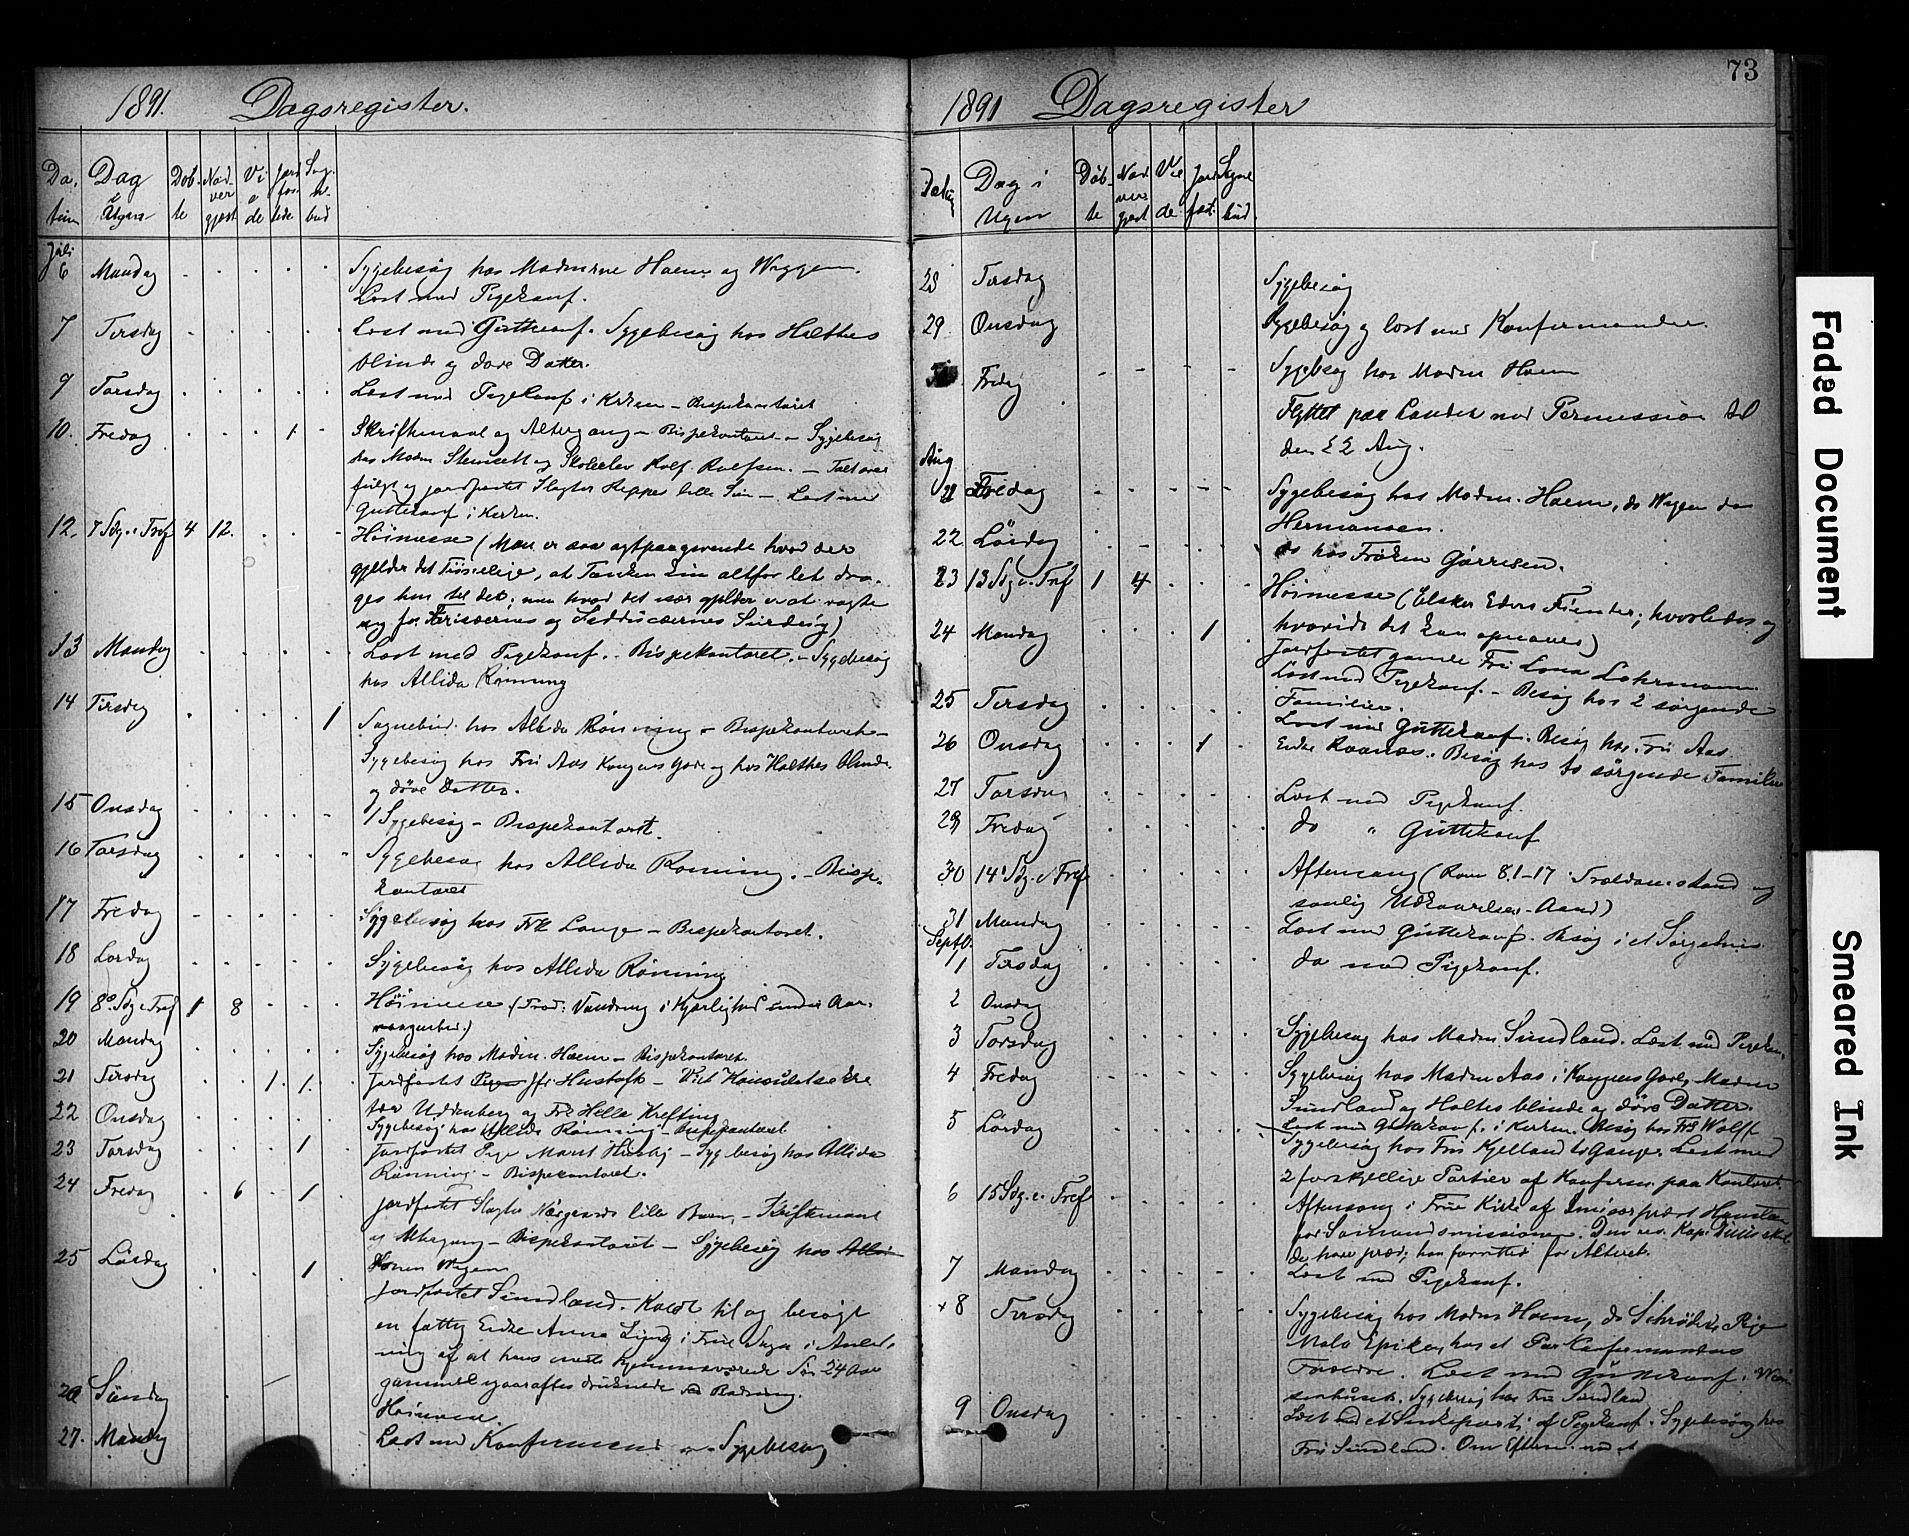 1891. Dagsregister.
Datum Dag i Ugen Döbte Nadvergjest Viede Jordfæstede Sognebud
Juli
6 Mandag Sygebesøg hos Madmerne Haem og Wiggen.
Læst med Pigekonf.
7 Tirsdag Læst med Guttekonf. Sygebesøg hos Holthes
blinde og døve Datter.
9 Torsdag Læst med Pigekonf i Kirken – Bispekontoret
10. Fredag 1 Skriftemaal og Altergang – Bispekontoret – Sygebesøg
hos Madm Stensett og Skoleelev Rolf Rolfsen. –
fulgt og jordfæstet Slagter lille Søn – Læst med
Guttekonf i Kirken.
12. 7 Sdg. e. Tref 4 12. Høimesse (Man er saa agtpaagivende hvad der
gjelder det Timelige, at Tanken kun altfor let dra-
ges hen til det; men hvad det især gjelder er at vogte
sig for Farisæernes og Sadducæernes Surdeig)
13 Mandag Læst med Pigekonf. – Bispekontoret. – Sygebesøg
hos Allida Rønning
14 Tirsdag 1 Sognebud hos Allida Rønning – Bispekontoret –
Sygebesøg hos Fru Aas Kongens Gade og hos Holthes blinde
og døve Datter.
15 Onsdag Sygebesøg – Bispekontoret.
16 Torsdag Sygebesøg hos Allida Rønning. – Bispe-
kontoret
17 Fredag Sygebesøg hos Frk Lange – Bispekontoret.
18 Lørdag Sygebesøg hos Allida Rønning
19 8de Sdg e Tref 1 8 Høimesse (Vandring i Kjærlighed under Aar-
vaagenhed.)
20 Mandag Sygebesøg hos Madm. Haem – Bispekontoret.
21 Tirsdag 1. 1. Jordfæstet – Viet Konsulatsekre
tær Uddenberg og Frk Helle Krefting
22 Onsdag Sygebesøg hos Allida Rønning – Bispekontoret
23 Torsdag 1 Jordfæstet Pige Marit Husby – Sygebesøg hos Allida
Rønning – Bispekontoret.
24 Fredag 6 1 Jordfæstet Slagter Nergaards lille Barn. – Skriftemaal
og Altergang – Bispekontoret – Sygebesøg hos
Wigen
25 Lørdag 1 Jordfæstet Sundland. Kaldt til og besøgt
en fattig Enke Anna i Frue i Anled-
ning af at hans eneste hjemmeværende Søn 24 Aar
gammel igaaraftes druknede
26 Søndag Høimesse.
27. Mandag Læst med Konfirmand – Sygebesøg
73
1891 Dagsregister
Datum Dag i Ugen Döbte Nadvergjest Viede Jordfæst. Sognebud
28 Tirsdag Sygebesøg
29 Onsdag Sygebesøg og læst med Konfirmander.
Fredag Sygebesøg hos Madm Haem
Flyttet paa Landet med Permission til
den 22 Aug.
Aug
21 Fredag Sygebesøg hos Madm. Haem, do Wigen do
Hermansen.
22 Lørdag do hos Frøken Gørrisen.
23 13 Sdg e. Tref 1 4 Høimesse (Elsker Eders Fiender; hvorledes og
hvorvidt det kan opnaaes)
24 Mandag 1 Jordfæstet gamle Fru Lona Lohrmann.
Læst med Pigekonf. – Besøg hos 2 sørgende
Familier.
25 Tirsdag Læst med Guttekonf. Besøg hos Fru Aas
26 Onsdag 1 Enke Raanæs. Besøg hos to sørgende Familier
27 Torsdag Læst med Pigekonf.
29 Fredag do " Guttekonf
30 14 Sdg. e Tref Aftensang (Rom 8.1-17 Trældommens Aand og
sønlig Udkaarelses Aand)
31 Mandag Læst med Guttekonf. Besøg i et Sørgehus.
Septb.
1 Tirsdag do med Pigekonf.
2 Onsdag
3 Torsdag Sygebesøg hos Madm Sundland. Læst med Pigekon.
4 Fredag Sygebesøg hos Madm Aas i Kongens Gade, Madm
Sundland og Holtes blinde og døve Datter.
5 Lørdag Læst med Guttekonf. i Kirken. Besøg hos Frk Wolff
Sygebesøg hos Fru Kjelland to Gange. Læst med
2 forskjellige Partier af Konfirm. paa Kontoret
6 15 Sdg. e. Tref Aftensang i Frue Kirke af
for Sømandsmissionen. Den res. Kap. skul
de have præd; han forrettede for Alteret.
7 Mandag Læst med Pigekonf.
+ 8 Tirsdag Sygebesøg hos Madm Haem, do Schrøders Pige
hos et Par Konfirmanders
Forældre. Læst med Guttekonf.
Sygebesøg hos Fru Sundland
9 Onsdag Læst med et af Pigekonf. Sygebesøg hos
Fru Sundland. Om Efterm. med et
Faded Document
Smeared Ink